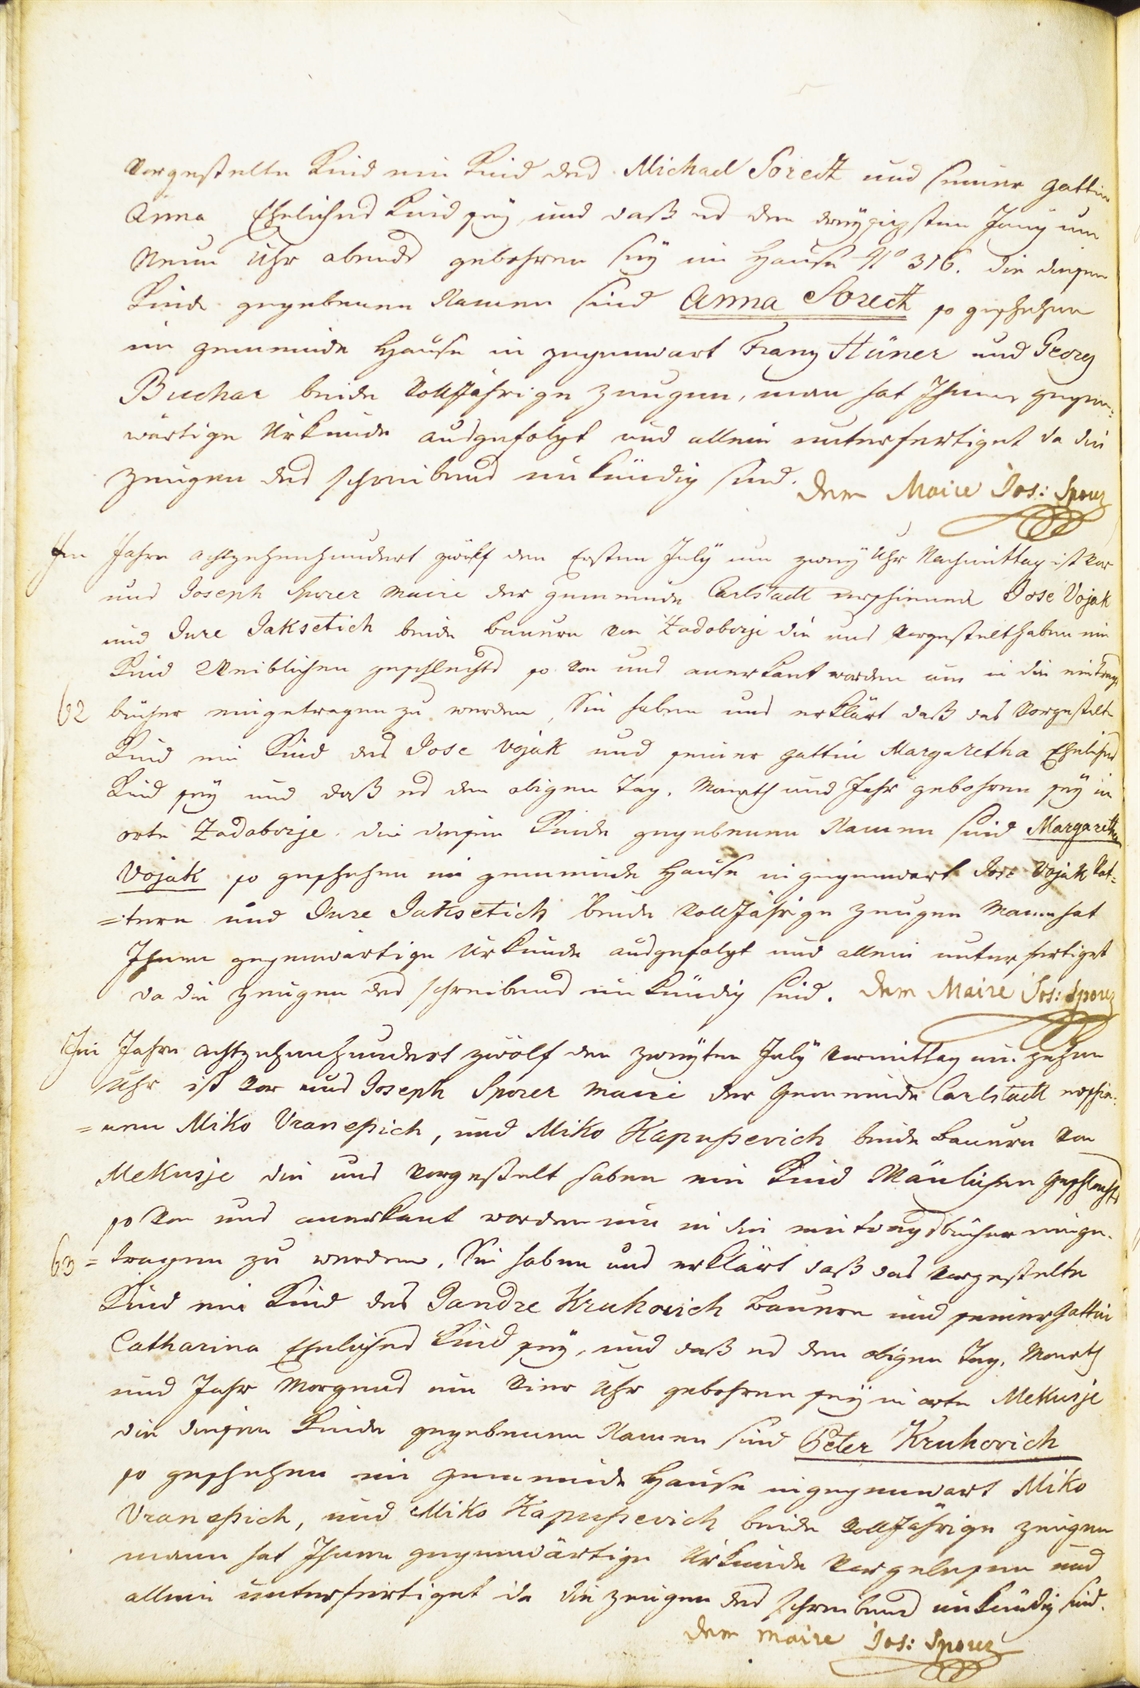 vorgestelte Kind ein Kind des Michael Sorectt und seiner gattin
Anna Ehelichs Kind seÿ und daß es den dreÿzigsten Junÿ um
Neun Uhr abends gebohren seÿ im Hause No 316. die diesem
Kinde gegebenen Namen sind Anna Sorectt so geschehen
im gemeinde Hause in gegenwart Franz Stüner und Georg
Buchar beide Volljährige Zeugen, man hat Ihnen gegen=
wärtige Urkunde ausgefolgt und allein unterfertiget da die
Zeugen des schreibens unkündig sind. Dem Maire Jos: Sporer
Im Jahre achtzehenhundert zwölf den Ersten Julÿ um zweÿ Uhr Nachmittag ist vor
uns Joseph Sporer Maire der gemeinde Carlstadt erschienen Jose Vojak
und Jure Jaksetich beide bauern von Zadoborje die uns vorgestelt haben ein
Kind Weiblichen geschlechts so von uns anerkant worden um in die eintrags
62 bücher eingetragen zu werden, Sie haben uns erklärt daß das vorgestelte
Kind ein Kind des Jose Vojak und seiner gattin Margaretha Ehelichs
Kind seÿ und daß es den obigen Tag, Monath und Jahr gebohren seÿ in
orte Zadoborje die diesem Kinde gegebenen Namen sind Margaretha
Vojak so geschehen im gemeinde Hause in gegenwart Jose Vojak Vat=
=tern und Jure Jaksetich beide Volljährige Zeugen Mann hat
Ihnen gegenwärtige Urkunde ausgefolgt und allein unterfertiget
da die Zeugen des schreibens unkündig sind. Dem Maire Jos: Sporer
Im Jahre achtzehenhundert zwölf den zweÿten Julÿ vormittag um zehen
Uhr ist vor uns Joseph Sporer Maire der Gemeinde Carlstadt erschie=
=nen Miko Vraneßich, und Miko Kapußevich beide Bauern von
Mekusje die uns vorgestelt haben ein Kind Mänlichen geschlechts
so von uns anerkant worden um in die eintragsbücher einge=
63 =tragen zu werden. Sie haben uns erklärt daß das vorgestelte
Kind ein Kind des Jandre Kruhovich Bauern und seiner Gattin
Catharina Ehelichs Kind seÿ, und daß es den obigen Tag, Monath
und Jahr Morgens um Vier Uhr gebohren seÿ in orte Mekusje
die diesem Kinde gegebenen Namen sind Peter Kruhovich
so geschehen im gemeinde Hause in gegenwart Miko
Vraneßich, und Miko Kapußevich beide Volljährige Zeugen
mann hat Ihnen gegenwärtige Urkunde vorgelesen und
allein unterfertiget da die Zeugen des schreibens unkündig sind.
Dem Maire Jos: Sporer